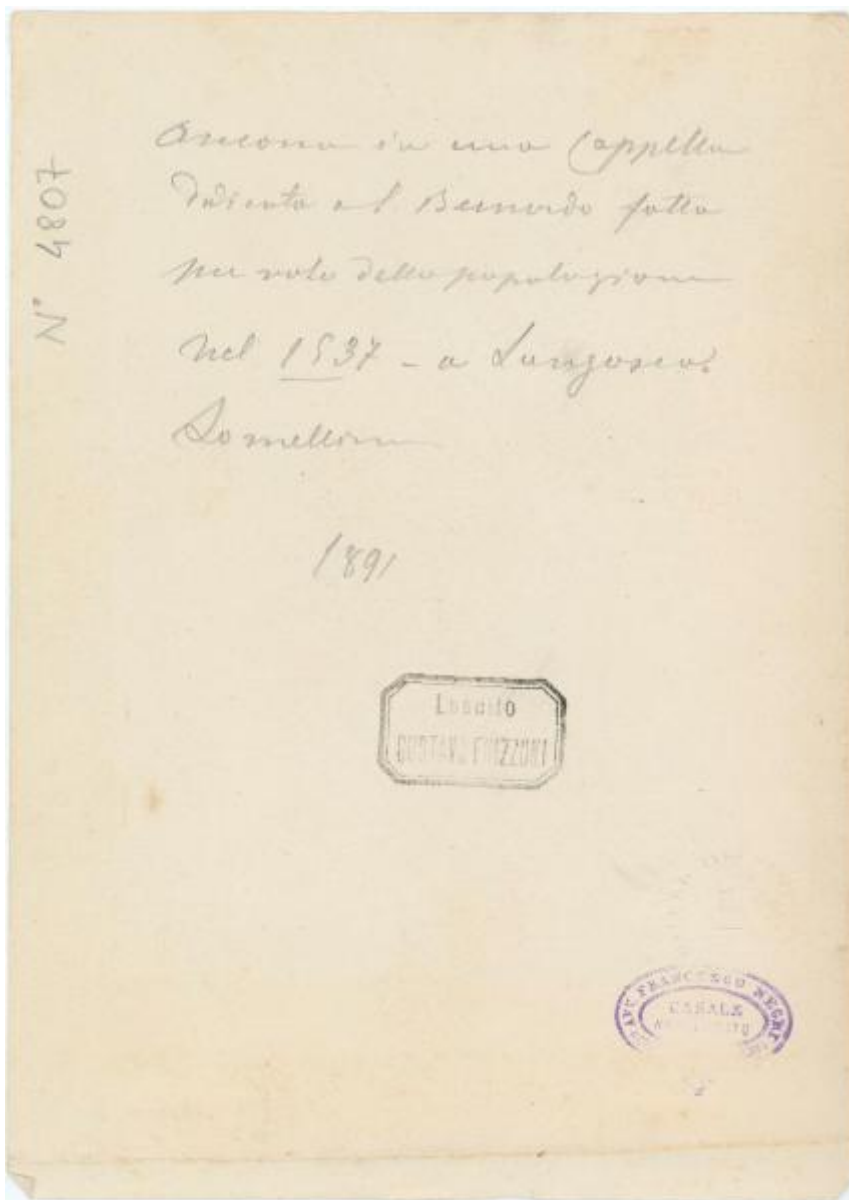 Ancona in una Cappella
dedicata a S. Bernardo fatta
per voto della popolazione
nel 1537 - a Langosco.
Lomellina
1891
N° 4807
Lascito
GUSTAVO FRIZZONI
AVV. FRANCESCO NEGRI
CASALE